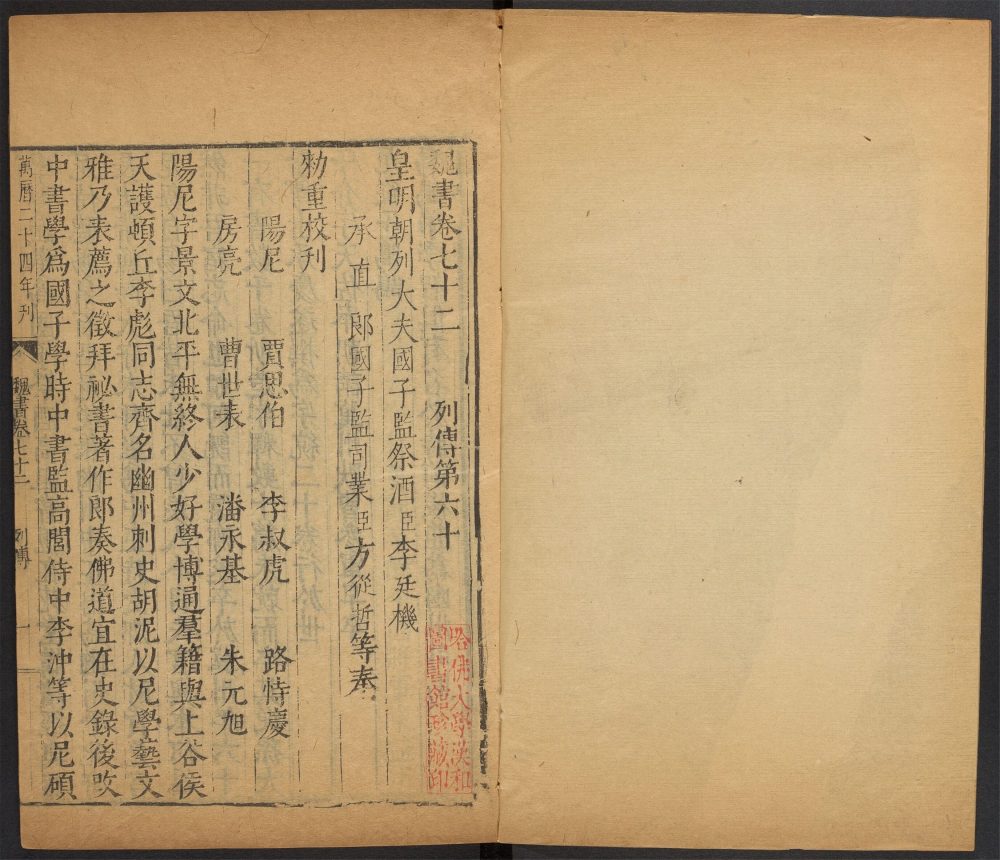 魏書卷七十二 列傳第六十
皇明朝列大夫國子監祭酒臣李廷機
承直郎國子監司業臣方從哲等奉
勑重校刊
陽尼 賈思伯 李叔虎 路恃慶
房亮 曹世表 潘永基 朱元旭
陽尼字景文北平無終人少好學博通羣籍與上谷侯
天護頓丘李彪同志齊名幽州刺史胡泥以尼學藝文
雅乃表薦之徵拜祕書著作郎奏佛道宜在史錄後改
中書學爲國子學時中書監高閭侍中李沖等以尼碩
萬曆二十四年刊
魏書卷七十二 列傳 一
哈佛大學漢和
圖書館珍藏印